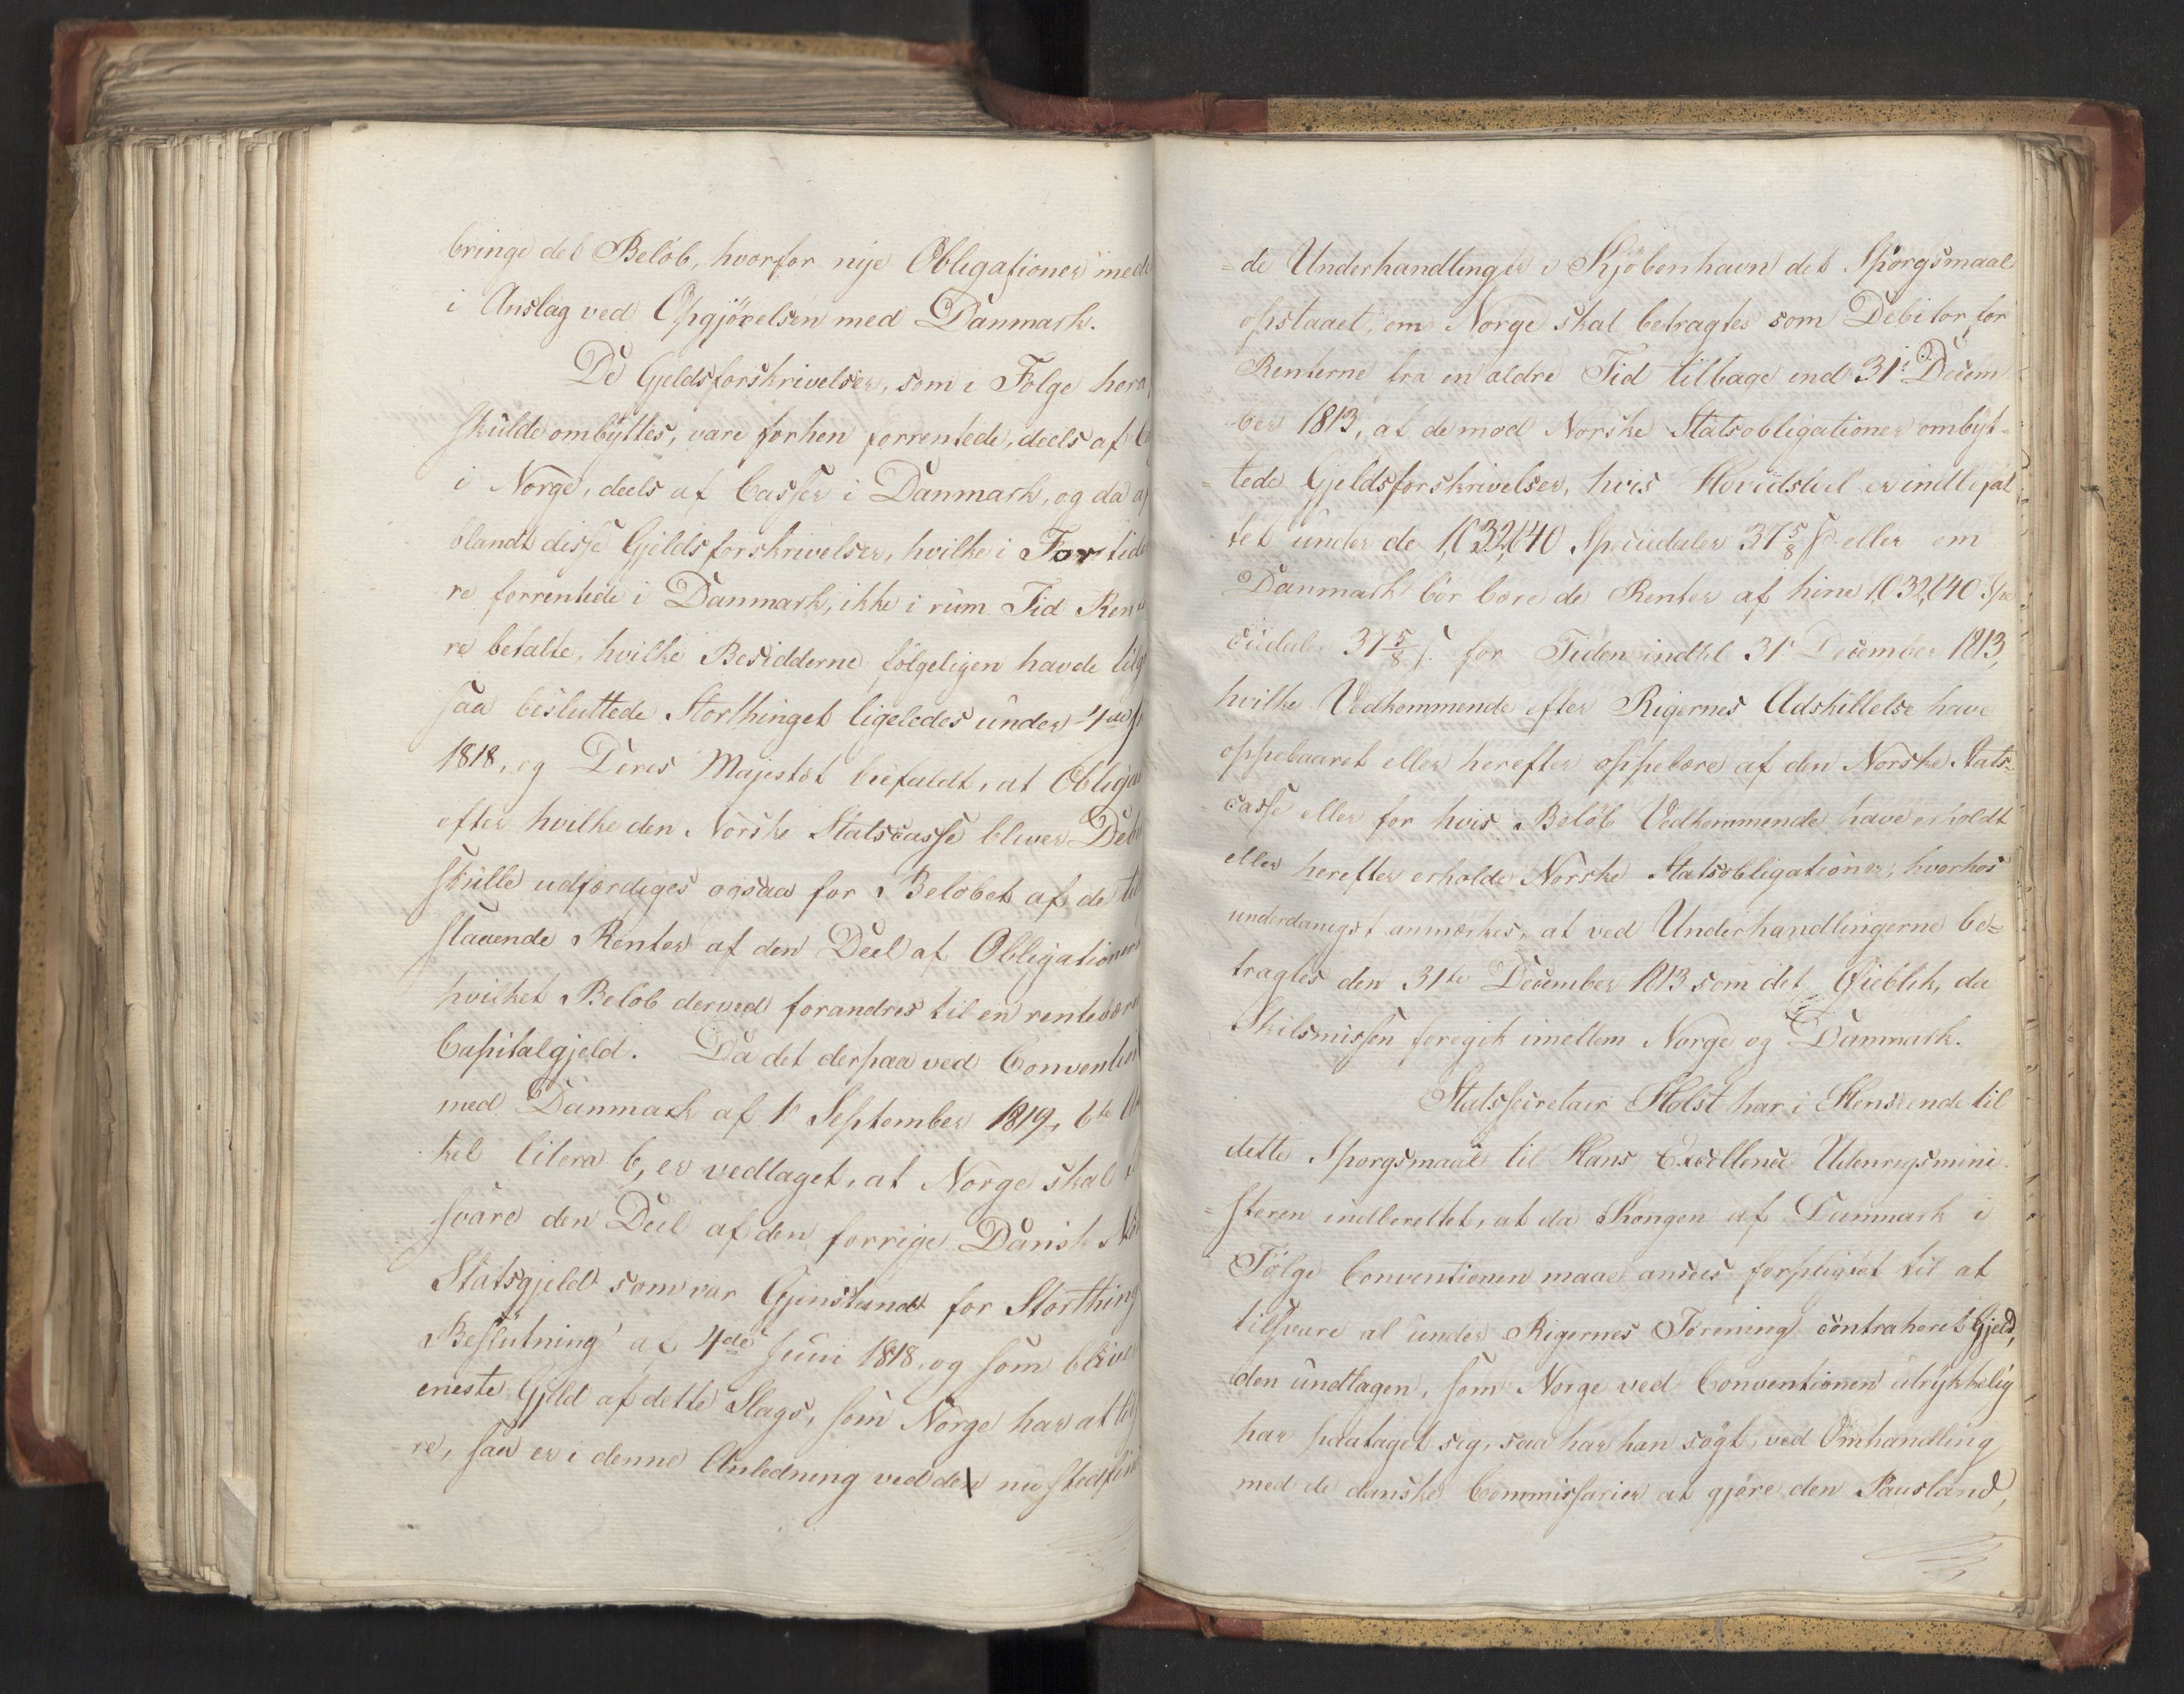 bringe det Beløb, hvorfor nye Obligationer med
i Anslag ved Opgjørelsen med Danmark.
De Gjeldsforskrivelser, som i Følge hera
skulde ombyttes, vare forhen forrentede, deels af C
i Norge, deels af Casser i Danmark, og da a
blandt disse Gjeldsforskrivelser, hvilke i For tide
re forrentede i Danmark, ikke i rum Tid Ren
re betalte, hvilke Besidderne følgeligen havde tilg
saa besluttede Storthinget ligeledes under 4de J
1818, og Deres Majestæt bifaldt, at Obliga
efter hvilke den Norske Statscasse bliver Deb
skulle udfærdiges ogsaa for Beløbet af de til
staaende Renter af den Deel af Obligationer
hvilket Beløb derved forandres til en rentebære
Capitalgjeld. Da det derpaa ved Convention
med Danmark af 1r September 1819, 6te A
kel litera b, er vedtaget, at Norge skal
svare den Deel af den forrige Dansk No
Statsgjeld som var Gjenstand for Storthing
Beslutning af 4de Juni 1818, og som bliver
eneste Gjeld af dette Slags, som Norge har at til
re, saa er i denne Anledning ved den nu stedfin
=de Underhandlinger i Kjøbenhavn det Spørgsmaal
opstaaet, om Norge skal betragtes som Debitor for
Renterne fra en ældre Tid tilbage end 31r Decem
ber 1813, af de mod Norske Statsobligationer ombyt=
=tede Gjeldsforskrivelser, hvis Hovedstol er indbefat
tet under de 1,032,640 Speciedaler 37 5/8 s. eller om
Danmark bør bære de Renter af hine 1,032,640 Spe
ciedaler 37 5/8 s. for Tiden indtil 31r December 1813,
hvilke Vedkommende efter Rigernes Adskillelse have
oppebaaret eller herefter oppebære af den Norske Stats=
=casse eller for hvis Beløb Vedkommende have erholdt
eller herefter erholde Norske Statsobligationer, hvorhos
underdanigst anmærkes, at ved Underhandlingerne be=
tragtes den 31te December 1813 som det Øieblik, da
Skilsmissen foregik imellem Norge og Danmark.
Statssecretair Holst har i Henseende til
dette Spørgsmaal til Hans Excellence Udenrigsmini
=steren indberettet, at da Kongen af Danmark i
Følge Conventionen maae ansees forpligtet til at
tilsvare al under Rigernes Forening contraheret Gjeld,
den undtagen, som Norge ved Conventionen udtrykkelig
har paataget sig, saa har han søgt, ved Omhandling
med de danske Commissarier at gjøre den Paastand,